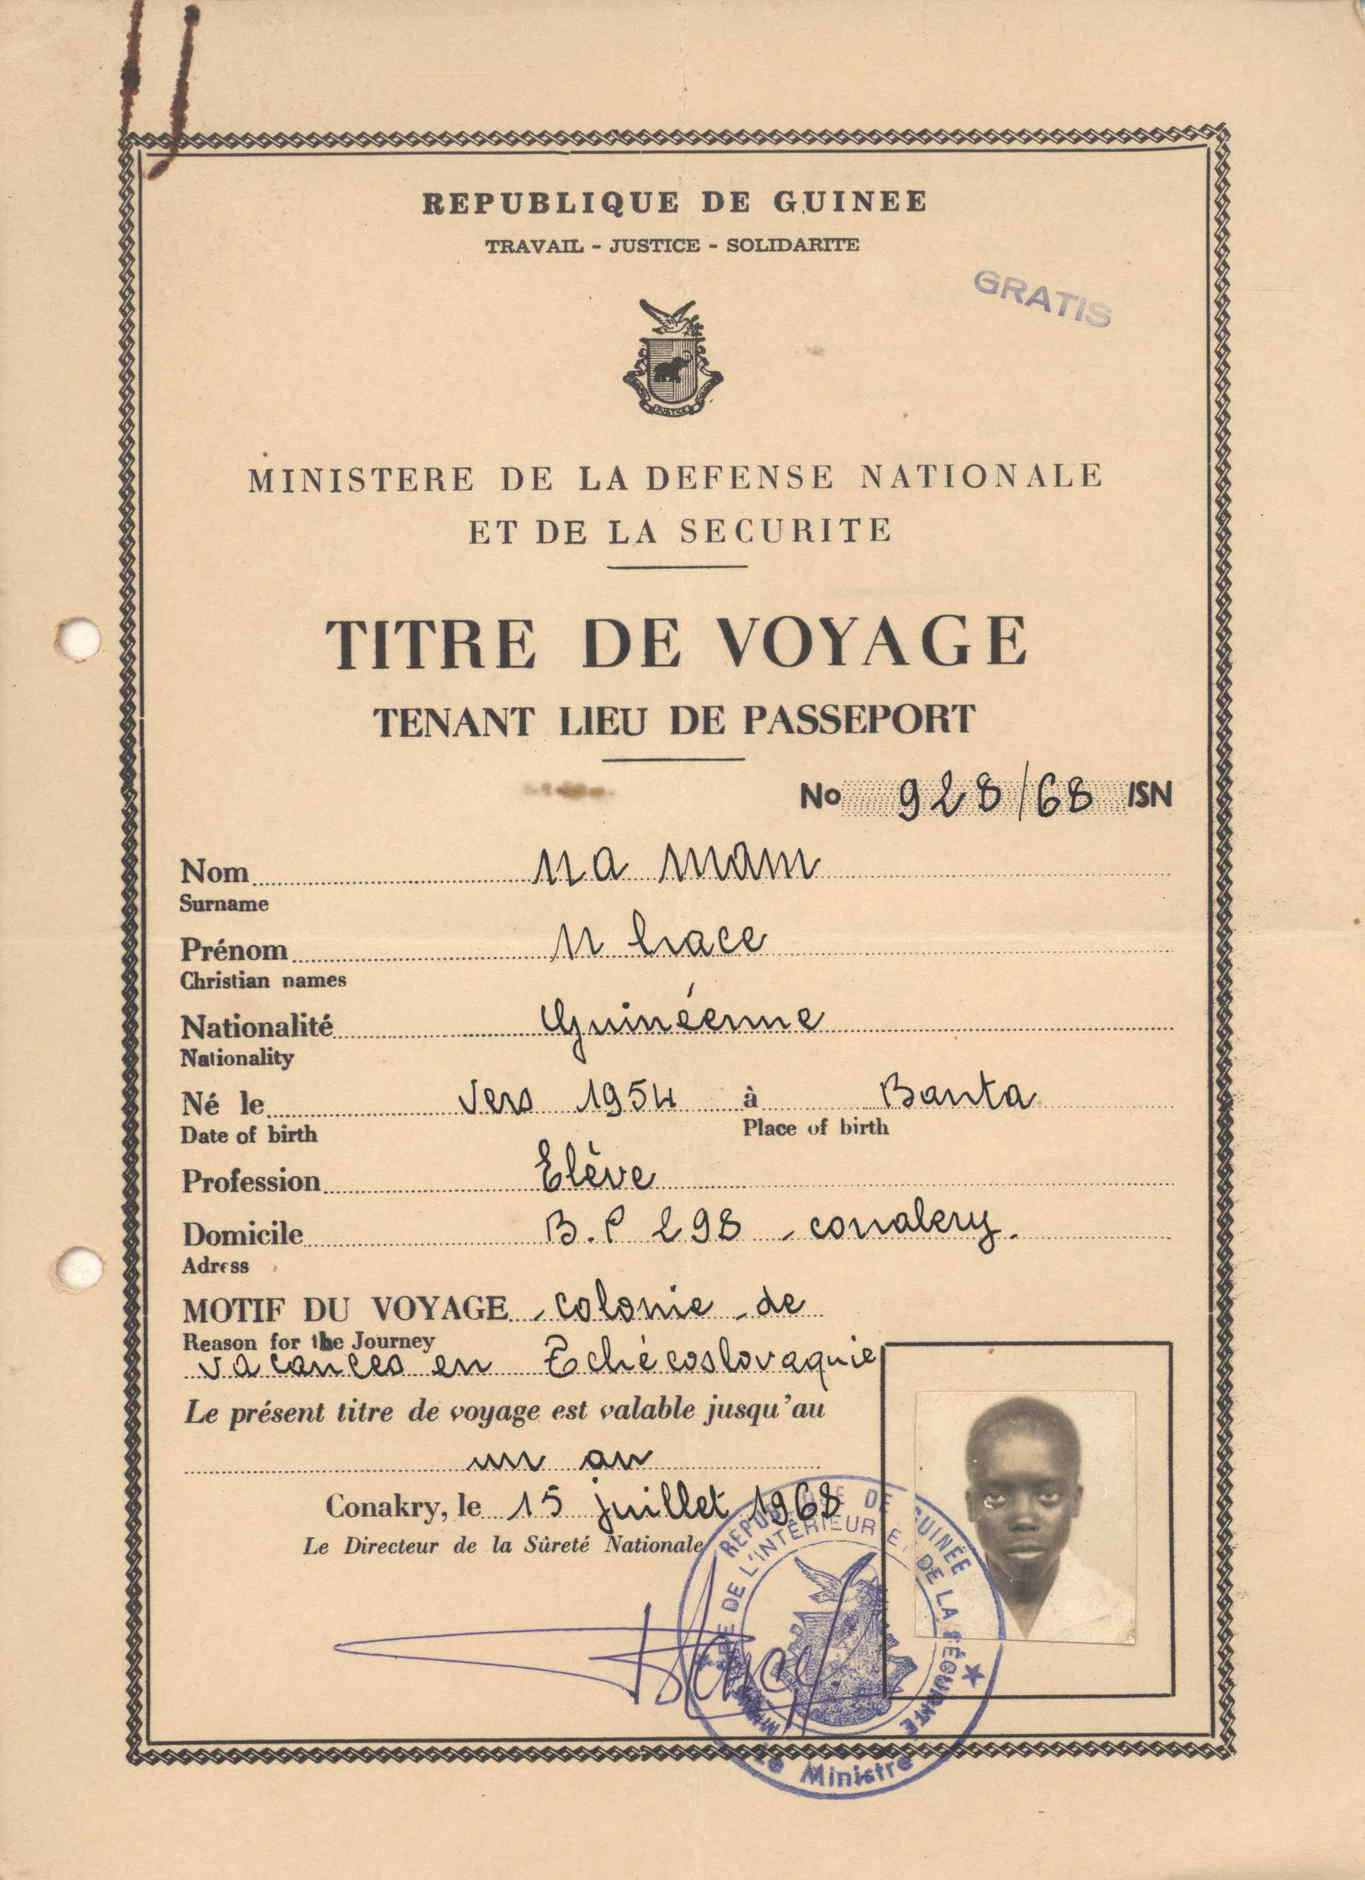 REPUBLIQUE DE GUINEE
TRAVAIL - JUSTICE - SOLIDARITE
GRATIS
MINISTERE DE LA DEFENSE NATIONALE
ET DE LA SECURITE
TITRE DE VOYAGE
TENANT LIEU DE PASSEPORT
No 928/68 /SN
Nom Na Mam
Surname
Prénom
Christian names
Nationalité Guinéenne
Nationality
Né le vers 1954 à Banta
Date of birth Place of birth
Profession Elève
Domicile B.P 298 - conakry.
Adress
MOTIF DU VOYAGE - colonie - de
Reason for the Journey
vacances en Tchécoslovaquie
Le présent titre de voyage est valable jusqu'au
un an
Conakry, le 15 juillet 1968
Le Directeur de la Sûreté Nationale
REPUBLIQUE DE GUINÉE
DE L'INTÉRIEUR ET DE LA SÉCURITÉ
Le Ministre